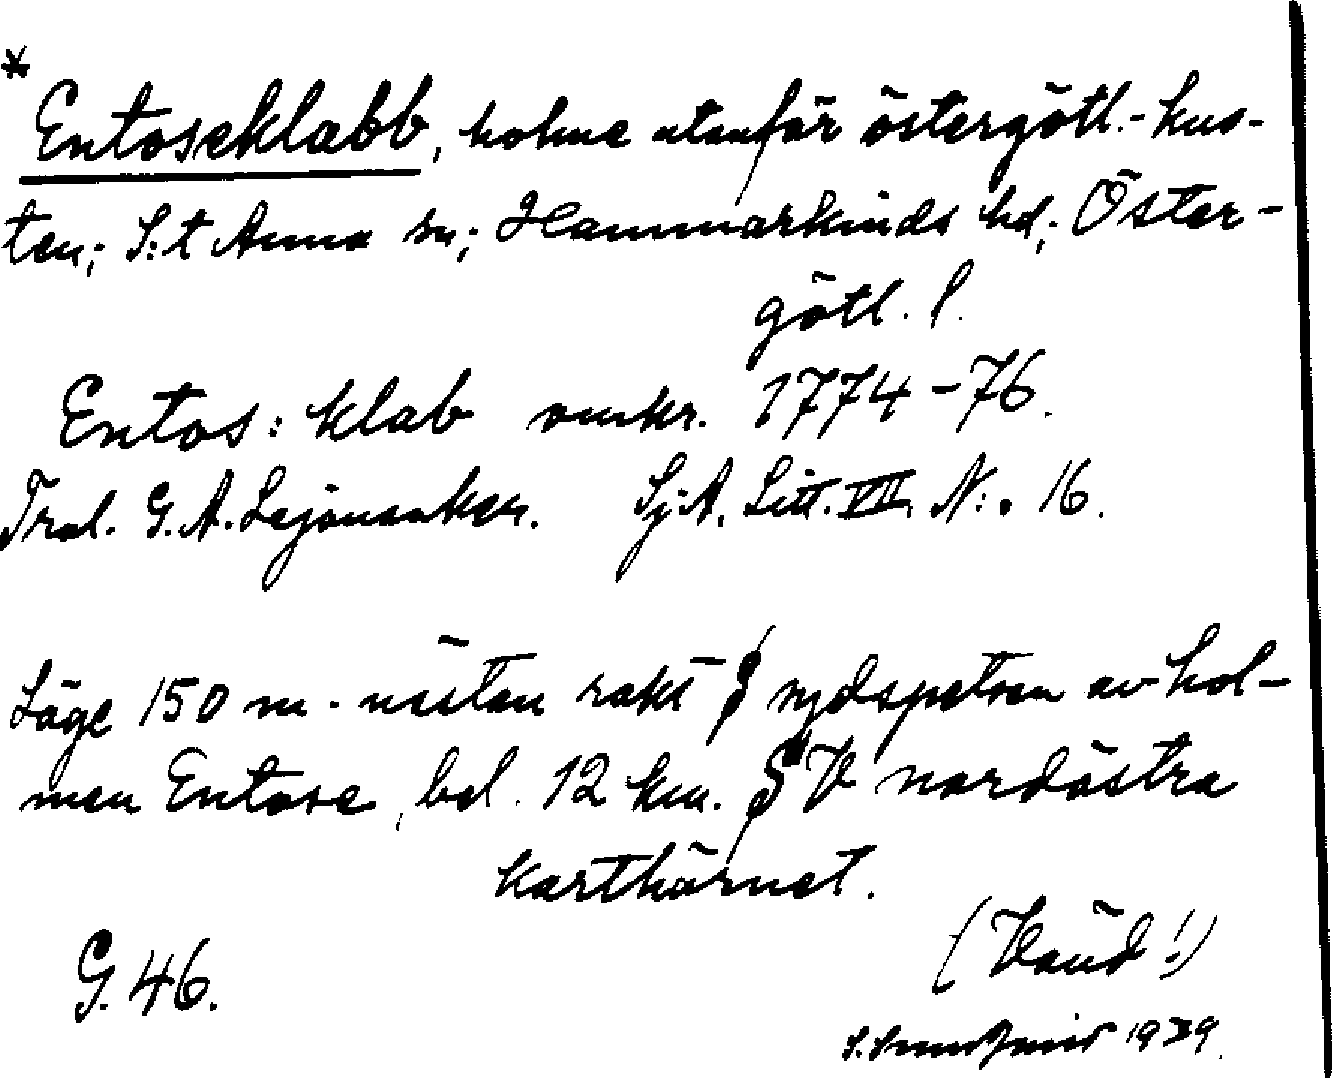 * Entoseklabb, holme utanför östergötl.-kus-
ten; S:t Anna sn; Hammarkinds hd; Öster-
götl. l.
Entos: klab omkr. 1774-76.
Tral. G. A. Lejonanker. Sj. A. Litt. VII N:o 16.
Läge 150 m. nästan rakt S sydspetsen av hol-
men Entose, bel. 12 km. SV nordöstra
karthörnet.
(Vänd!)
G. 46.
1939.